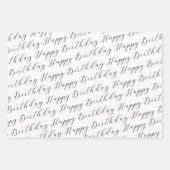 Happy Birthday Happy Birthday
Happy Birthday Happy Birthday
Happy Birthday Happy Birthday
Happy Birthday Happy Birthday
Happy Birthday Happy Birthday
Happy Birthday Happy Birthday
Happy Birthday Happy Birthday
Happy Birthday Happy Birthday